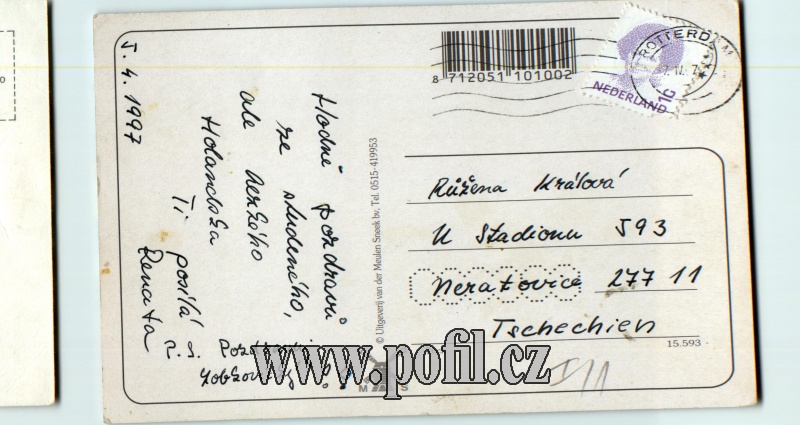 5. 4. 1997
Hodně pozdravů
ze studeného,
ale hezkého
Holandska
Ti posílá
Renata
P. S.
© Uitgeverij van der Meulen Sneek bv. Tel. 0515-419953
8 712051 101002
ROTTERD
NEDERLAND
1G
Růžena Králová
U Stadionu 593
Neratovice 277 11
Tschechien
15.593
www.pofil.cz